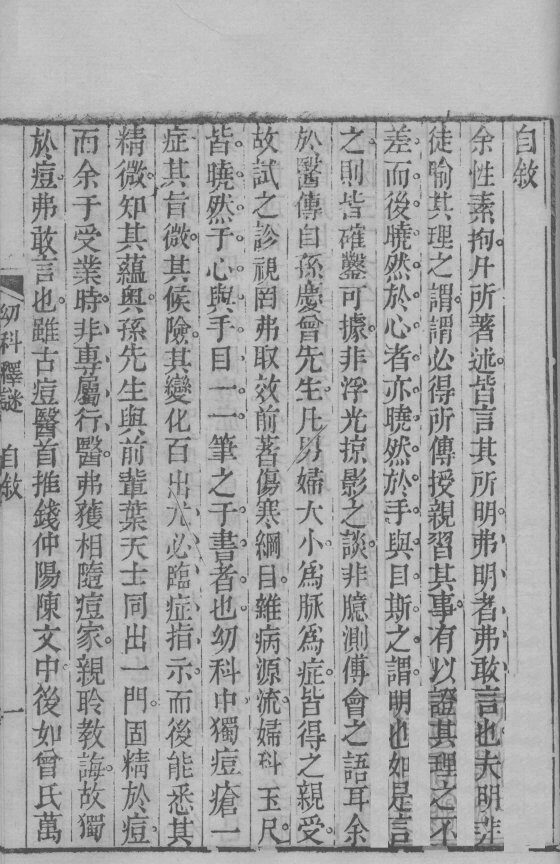 自敘
余性素拘凡所著述皆言其所明弗明者弗敢言也夫明非
徒喻其理之謂謂必得所傳授親習其事有以證其理之不
差而後曉然於心者亦曉然於手與目斯之謂明也如是言
之則皆確鑿可據非浮光掠影之談非臆測傅會之語耳余
於醫傳自孫慶曾先生凡男婦大小爲脉爲症皆得之親受
故試之診視罔弗取效前著傷寒綱目雜病源流婦科玉尺
皆曉然于心與手目一一筆之于書者也幼科中獨痘瘡一
症其旨微其候險其變化百出尤必臨症指示而後能悉其
精微知其蘊奥孫先生與前輩葉天士同出一門固精於痘
而余于受業時非專屬行醫弗獲相隨痘家親聆教誨故獨
於痘弗敢言也雖古痘醫首推錢仲陽陳文中後如曾氏萬
幼科釋謎 自敘 一